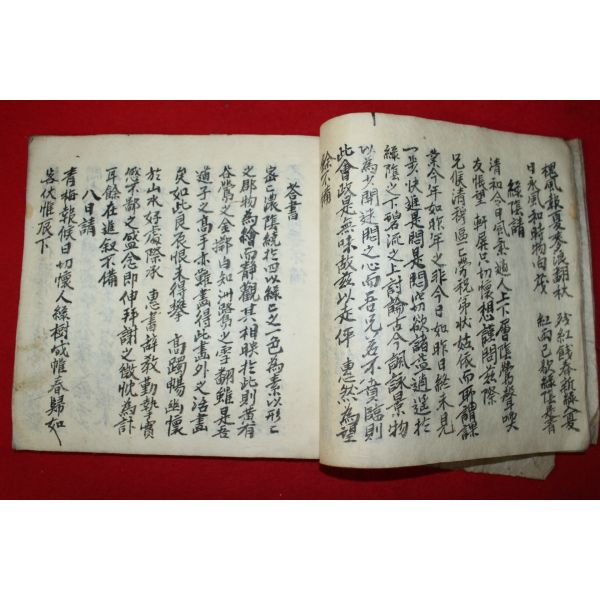 槐風報夏麥浪翻秋
日永風和時物向茂
殘紅餞春新綠入夏
紅雨已歇綠陰
綠陰請
清和今日風氣適人上下層陰鶯聲喚
友悵望 軒屛只切懷想謹問玆際
兄候淸穆區區勞祝弟狀姑依而所謂課
業今年如昨年之昨今日如昨日終未見
一步快進是悶是悶切欲諸益逍遙於
綠陰之下碧流之上討論古今諷詠景物
以為少開迷悶之心而吾兄若不賁臨則
此會政是無味故玆以走伻 惠然為望
餘不備
答書
密密濃陰繞於四
綠色之一色為素以形形
之物為繪而靜觀其相映於此則黃者
谷鶯之金擲白知洲鷺之雪翻雖是吾
道子之高手亦難盡得此畫外之活畫
矣如此良辰恨未得攀 高躅暢幽懷
於山水好處際承 惠書辭敎勤摯實
感不鄙之盛念即伸拜謝之微忱為計
耳餘在進敘不備
八日請
靑梅報候日切懷人綠樹成帷春歸如
客伏惟辰下